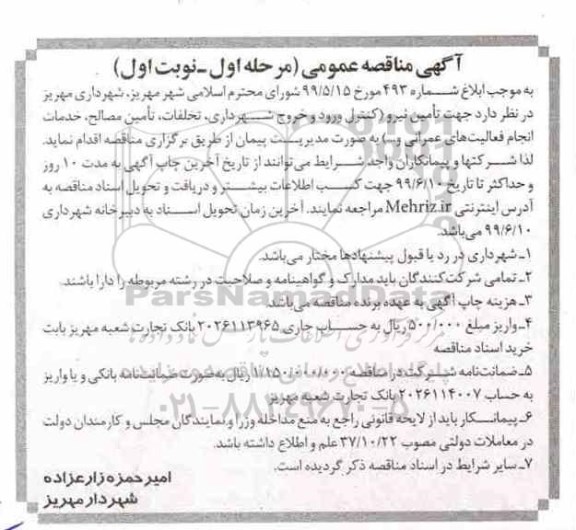 آگهی مناقصه عمومی (مرحله اول ـ نوبت اول)
به موجب ابلاغ شماره ۴۹۳ مورخ ۹۹/۵/۱۵ شورای محترم اسلامی شهر مهریز، شهرداری مهریز
در نظر دارد جهت تأمین نیرو (کنترل ورود و خروج شهرداری، تخلفات، تأمین مصالح، خدمات
انجام فعالیت‌های عمرانی و...) به صورت مدیریت پیمان از طریق برگزاری مناقصه اقدام نماید.
لذا شرکتها و پیمانکاران واجد شرایط می‌توانند از تاریخ آخرین چاپ آگهی به مدت ۱۰ روز
و حداکثر تا تاریخ ۹۹/۶/۱۰ جهت کسب اطلاعات بیشتر و دریافت و تحویل اسناد مناقصه به
آدرس اینترنتی Mehriz.ir مراجعه نمایند. آخرین زمان تحویل اسناد به دبیرخانه شهرداری
۹۹/۶/۱۰ می‌باشد.
۱ـ شهرداری در رد یا قبول پیشنهادها مختار می‌باشد.
۲ـ تمامی شرکت‌کنندگان باید مدارک و گواهینامه و صلاحیت در رشته مربوطه را دارا باشند.
ParsNamadData
۳ـ هزینه چاپ آگهی به عهده برنده مناقصه می‌باشد.
۴ـ واریز مبلغ ۵۰۰/۰۰۰ ریال به حساب جاری ۲۰۲۶۱۱۳۹۶۵ بانک تجارت شعبه مهریز بابت
خرید اسناد مناقصه
۵ـ ضمانت‌نامه شرکت در مناقصه ۱/۱۵۰/۰۰۰/۰۰۰ ریال به صورت ضمانتنامه بانکی و یا واریز
به حساب ۲۰۲۶۱۱۴۰۰۷ بانک تجارت شعبه مهریز
۰۲۱-۸۸۳۴۹۶۷۰-۵
۶ـ پیمانکار باید از لایحه قانونی راجع به منع مداخله وزرا و نمایندگان مجلس و کارمندان دولت
در معاملات دولتی مصوب ۳۷/۱۰/۲۲ علم و اطلاع داشته باشد.
۷ـ سایر شرایط در اسناد مناقصه ذکر گردیده است.
امیرحمزه زارعزاده
شهردار مهریز